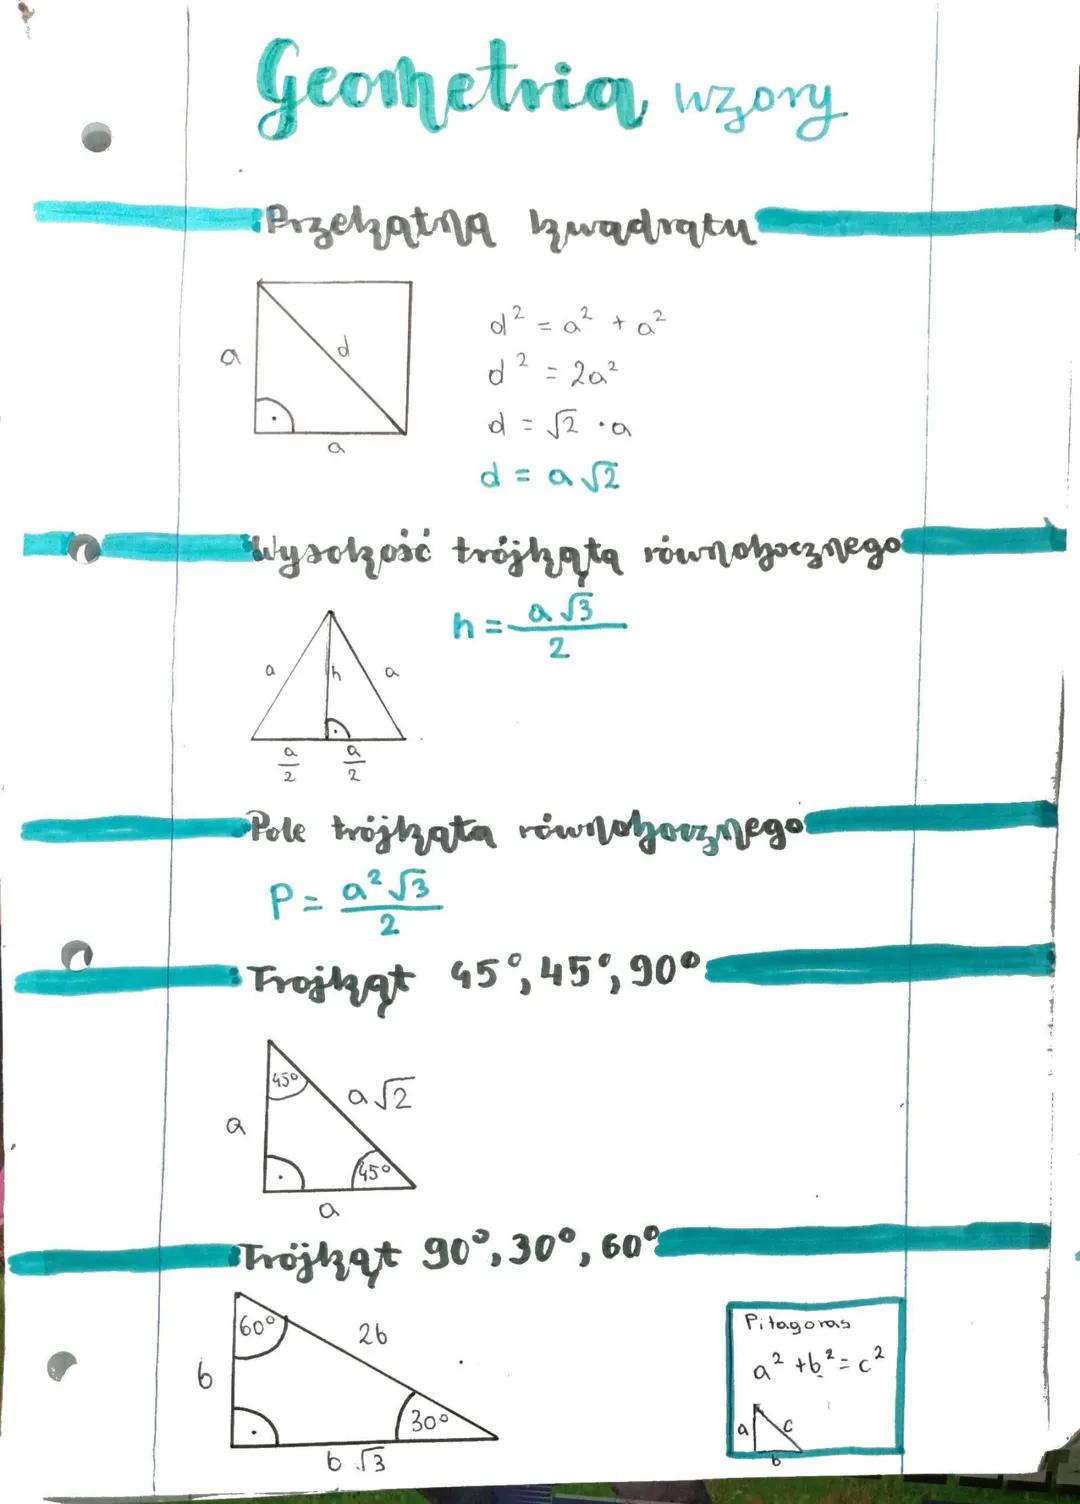 Geometria wzory
Przekątna kwadratu
a
d
a
d² = a² + a²
d² = 2a²
d = √2 · a
d = a√2
Wysokość trójkąta równobocznego
h = a√3/2
a h a
a/2 a/2
Pole trójkąta równobocznego
P = a²√3/2
Trojkąt 45°, 45°, 90°
45°
a√2
a
45°
a
Trójkąt 90°, 30°, 60°
60°
2b
b
30°
b√3
Pitagoras
a² + b² = c²
a c
b